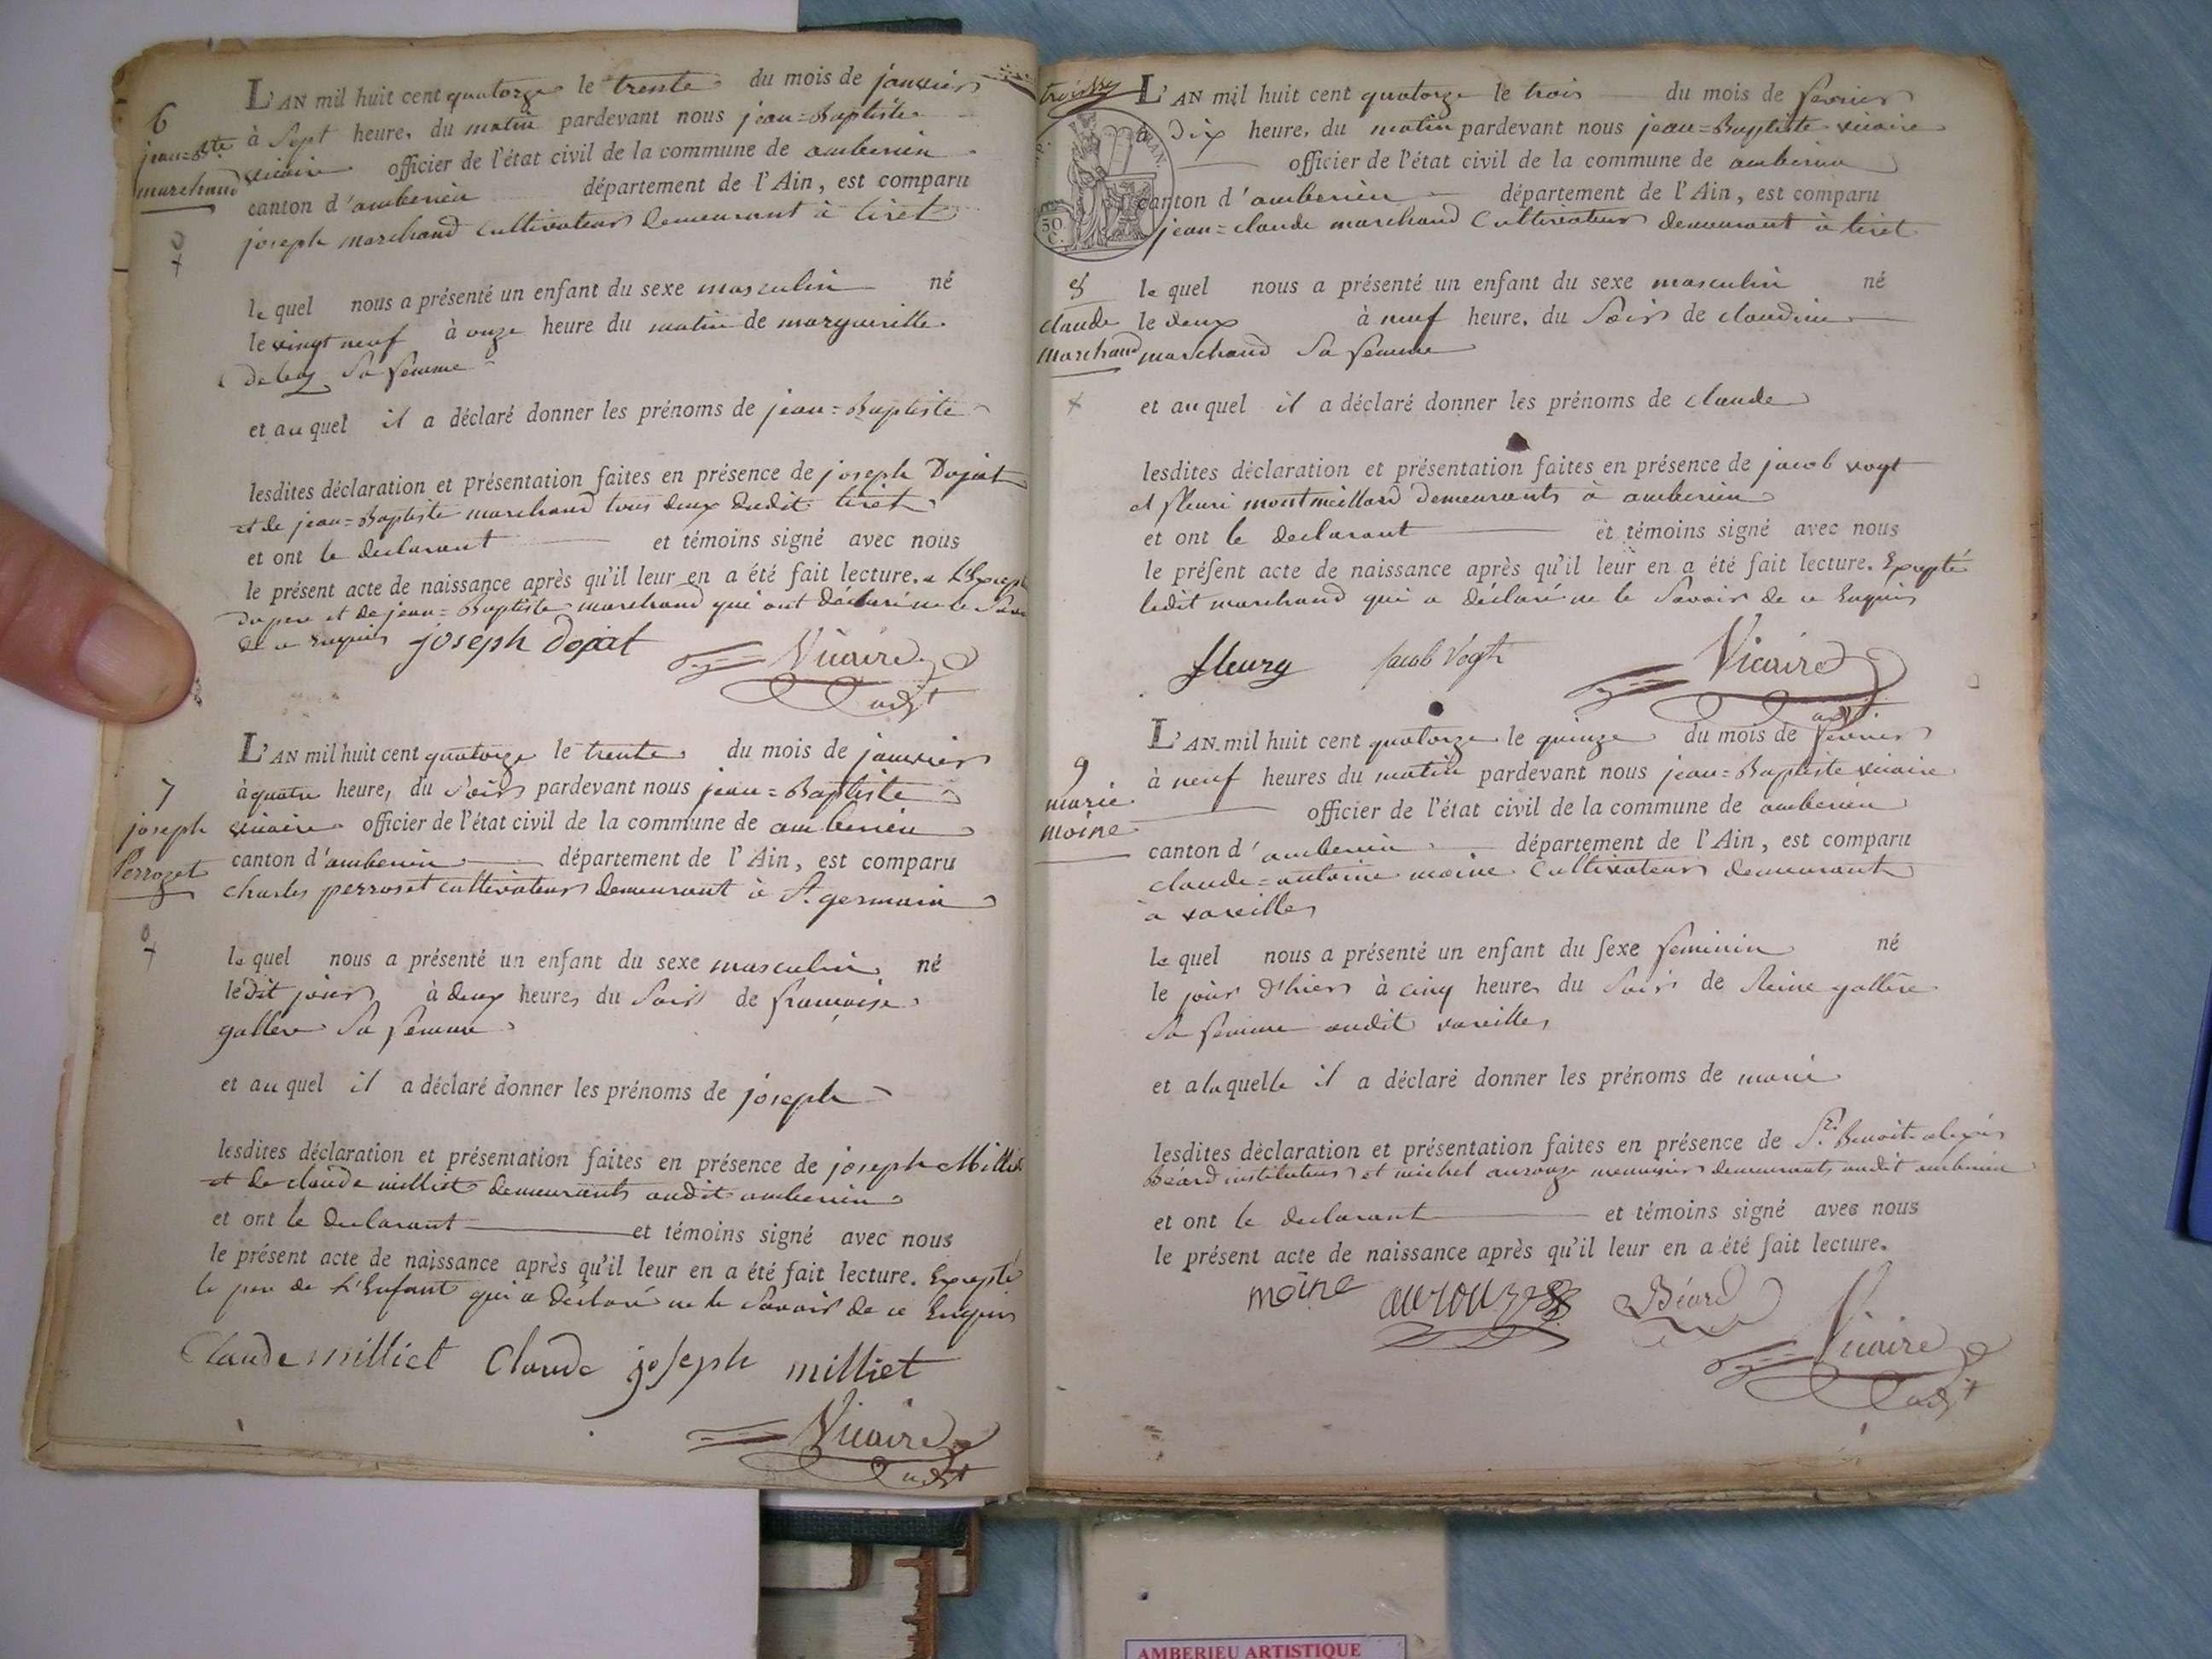 6
jean=Bte
marchand
L'AN mil huit cent quatorze le trente du mois de janvier
à Sept heure, du matin pardevant nous jean=Baptiste
vicaire officier de l'état civil de la commune de amberieu
canton d'amberieu département de l'Ain, est comparu
joseph marchand cultivateur demeurant à tiret
le quel nous a présenté un enfant du sexe masculin né
le vingt neuf à onze heure du matin de margueritte
sa femme
et au quel il a déclaré donner les prénoms de jean=Baptiste
lesdites déclaration et présentation faites en présence de joseph Dojat
et de jean=Baptiste marchand tous deux dudit tiret
et ont le declarant et témoins signé avec nous
le présent acte de naissance après qu'il leur en a été fait lecture. a
du pere et de jean=Baptiste marchand qui ont déclaré ne le Savoir
de ce Enquis joseph Dojat Vicaire
adjt
7
joseph
Perrozet
L'AN mil huit cent quatorze le trente du mois de janvier
à quatre heure, du Soir pardevant nous jean=Baptiste
vicaire officier de l'état civil de la commune de amberieu
canton d'amberieu département de l'Ain, est comparu
charles perroset cultivateur demeurant à St. germain
le quel nous a présenté un enfant du sexe masculin né
ledit jour à deux heures du Soir de francoise
gallere sa femme
et au quel il a déclaré donner les prénoms de joseph
lesdites déclaration et présentation faites en présence de joseph Milliet
et de claude milliet demeurants audit amberieu
et ont le declarant et témoins signé avec nous
le présent acte de naissance après qu'il leur en a été fait lecture. Excepté
le pere de L'Enfant qui a déclaré ne le Savoir de ce Enquis
Claude milliet Claude joseph milliet
Vicaire
adjt
trois
L'AN mil huit cent quatorze le trois du mois de fevrier
à Dix heure, du matin pardevant nous jean=Baptiste vicaire
officier de l'état civil de la commune de amberieu
canton d'amberieu département de l'Ain, est comparu
50
C.
jean=claude marchand Cultivateur demeurant à tiret
8
claude
marchand
le quel nous a présenté un enfant du sexe masculin né
le deux à neuf heure, du Soir de claudine
marchand Sa femme
et au quel il a déclaré donner les prénoms de claude
lesdites déclaration et présentation faites en présence de jacob vogt
et fleuri montmeillard demeurants à amberieu
et ont le declarant et témoins signé avec nous
le présent acte de naissance après qu'il leur en a été fait lecture. Excepté
ledit marchand qui a déclaré ne le Savoir de ce Enquis
fleury Jacob Vogt Vicaire
adjt
9
marie
moine
L'AN mil huit cent quatorze le quinze du mois de fevrier
à neuf heures du matin pardevant nous jean=Baptiste vicaire
officier de l'état civil de la commune de amberieu
canton d'amberieu département de l'Ain, est comparu
claude=antoine moine Cultivateur demeurant
a vareilles
le quel nous a présenté un enfant du sexe feminin né
le jour d'hier à cinq heures du Soir de Reine gallere
Sa femme audit vareilles
et a laquelle il a déclaré donner les prénoms de marie
lesdites déclaration et présentation faites en présence de Sr. Benoit alexis
Béard instituteur et michel aurouze menuisier demeurants audit amberieu
et ont le declarant et témoins signé avec nous
le présent acte de naissance après qu'il leur en a été fait lecture.
moine aurouze Béard
Vicaire
adjt
AMBERIEU ARTISTIQUE